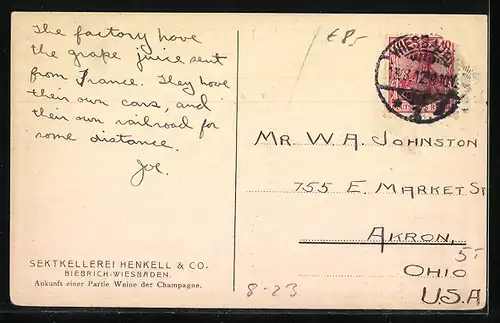 The factory have
the grape juice sent
from France. They have
their own cars, and
their own railroad for
some distance.
Joe.
SEKTKELLEREI HENKELL & CO.
BIEBRICH-WIESBADEN.
Ankunft einer Partie Weine der Champagne.
€8,-
WIESBADEN
MR. W. A. JOHNSTON
755 E. MARKET ST
AKRON,
5-
OHIO
U.S.A
8-23